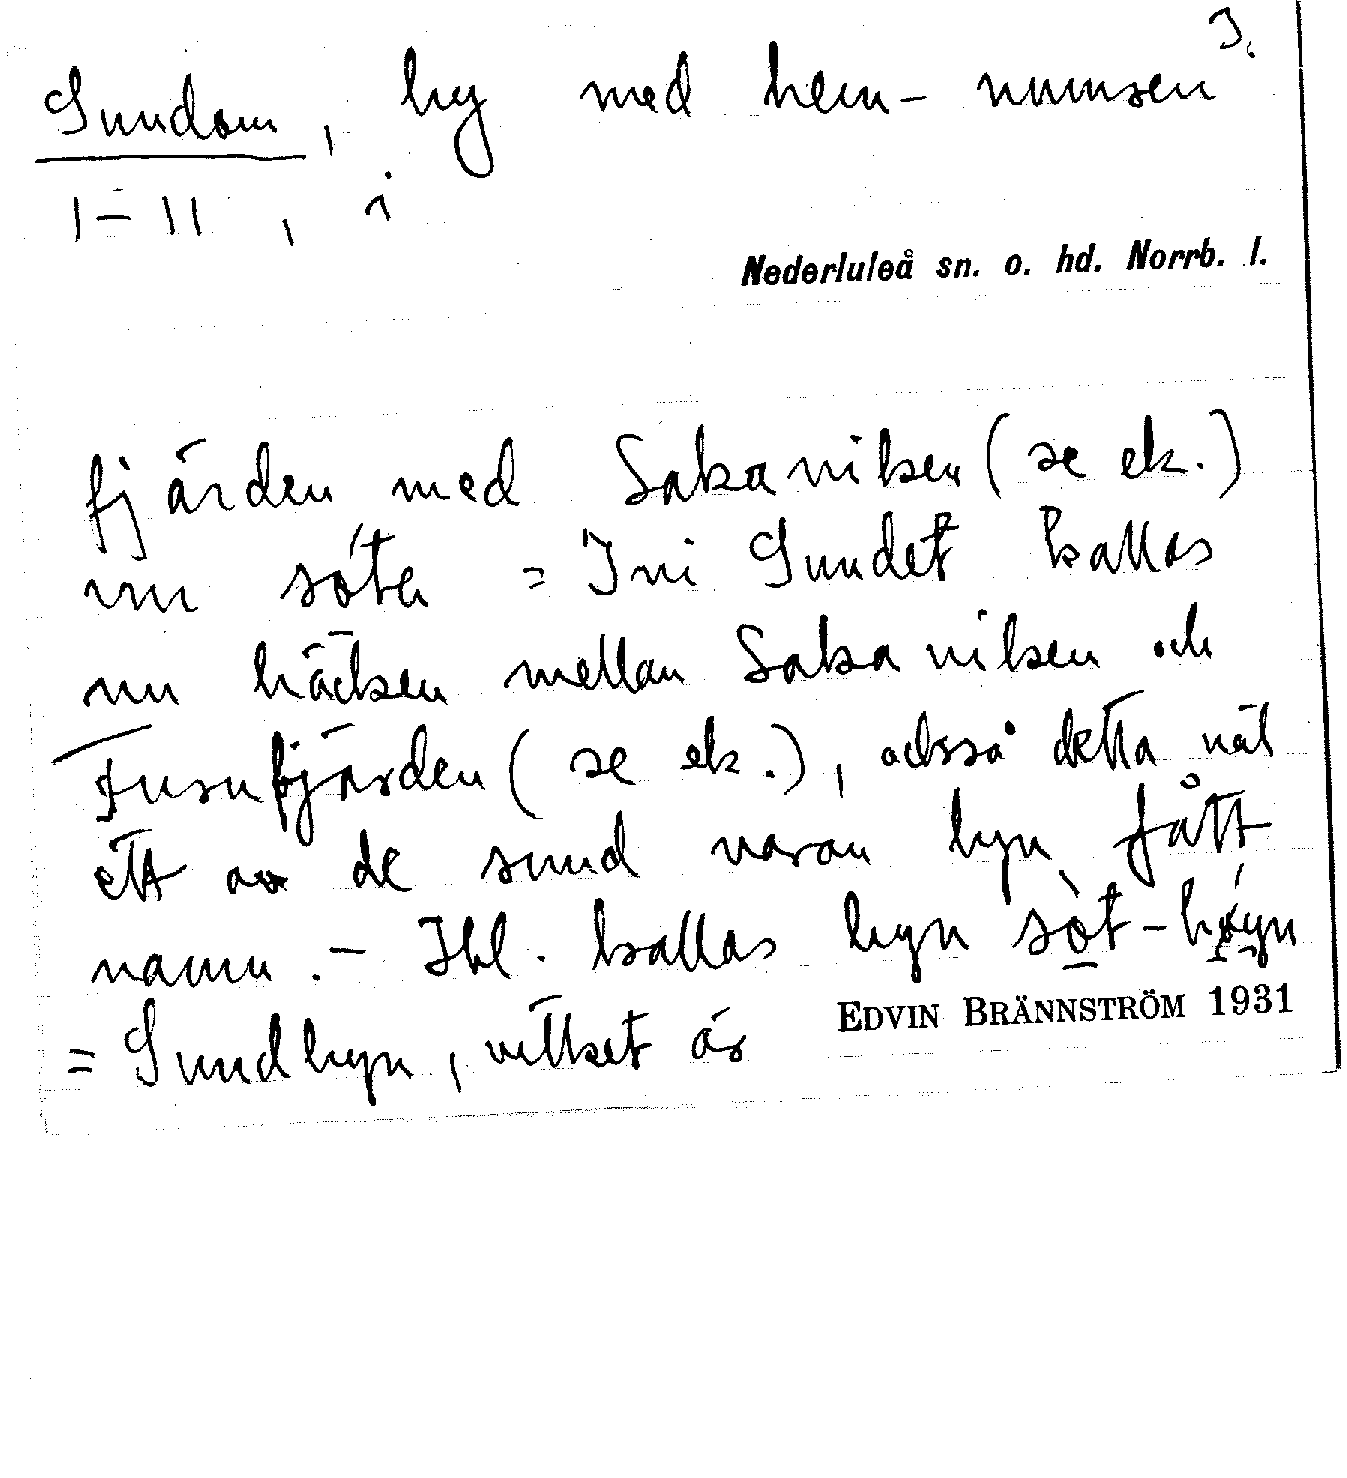 3.
Sundom, by med hem- numren
1–11, i
Nederluleå sn. o. hd. Norrb. l.
fjärden med Sakaviken (se ek.)
inı söte = Ini Sundet kallas
nu bäcken mellan Sakaviken och
Furufjärden (se ek.), också detta väl
ett av de sund varav byn fått
namn. – Ibl. kallas byn sòt-býyn
= Sundbyn, vilket är
EDVIN BRÄNNSTRÖM 1931